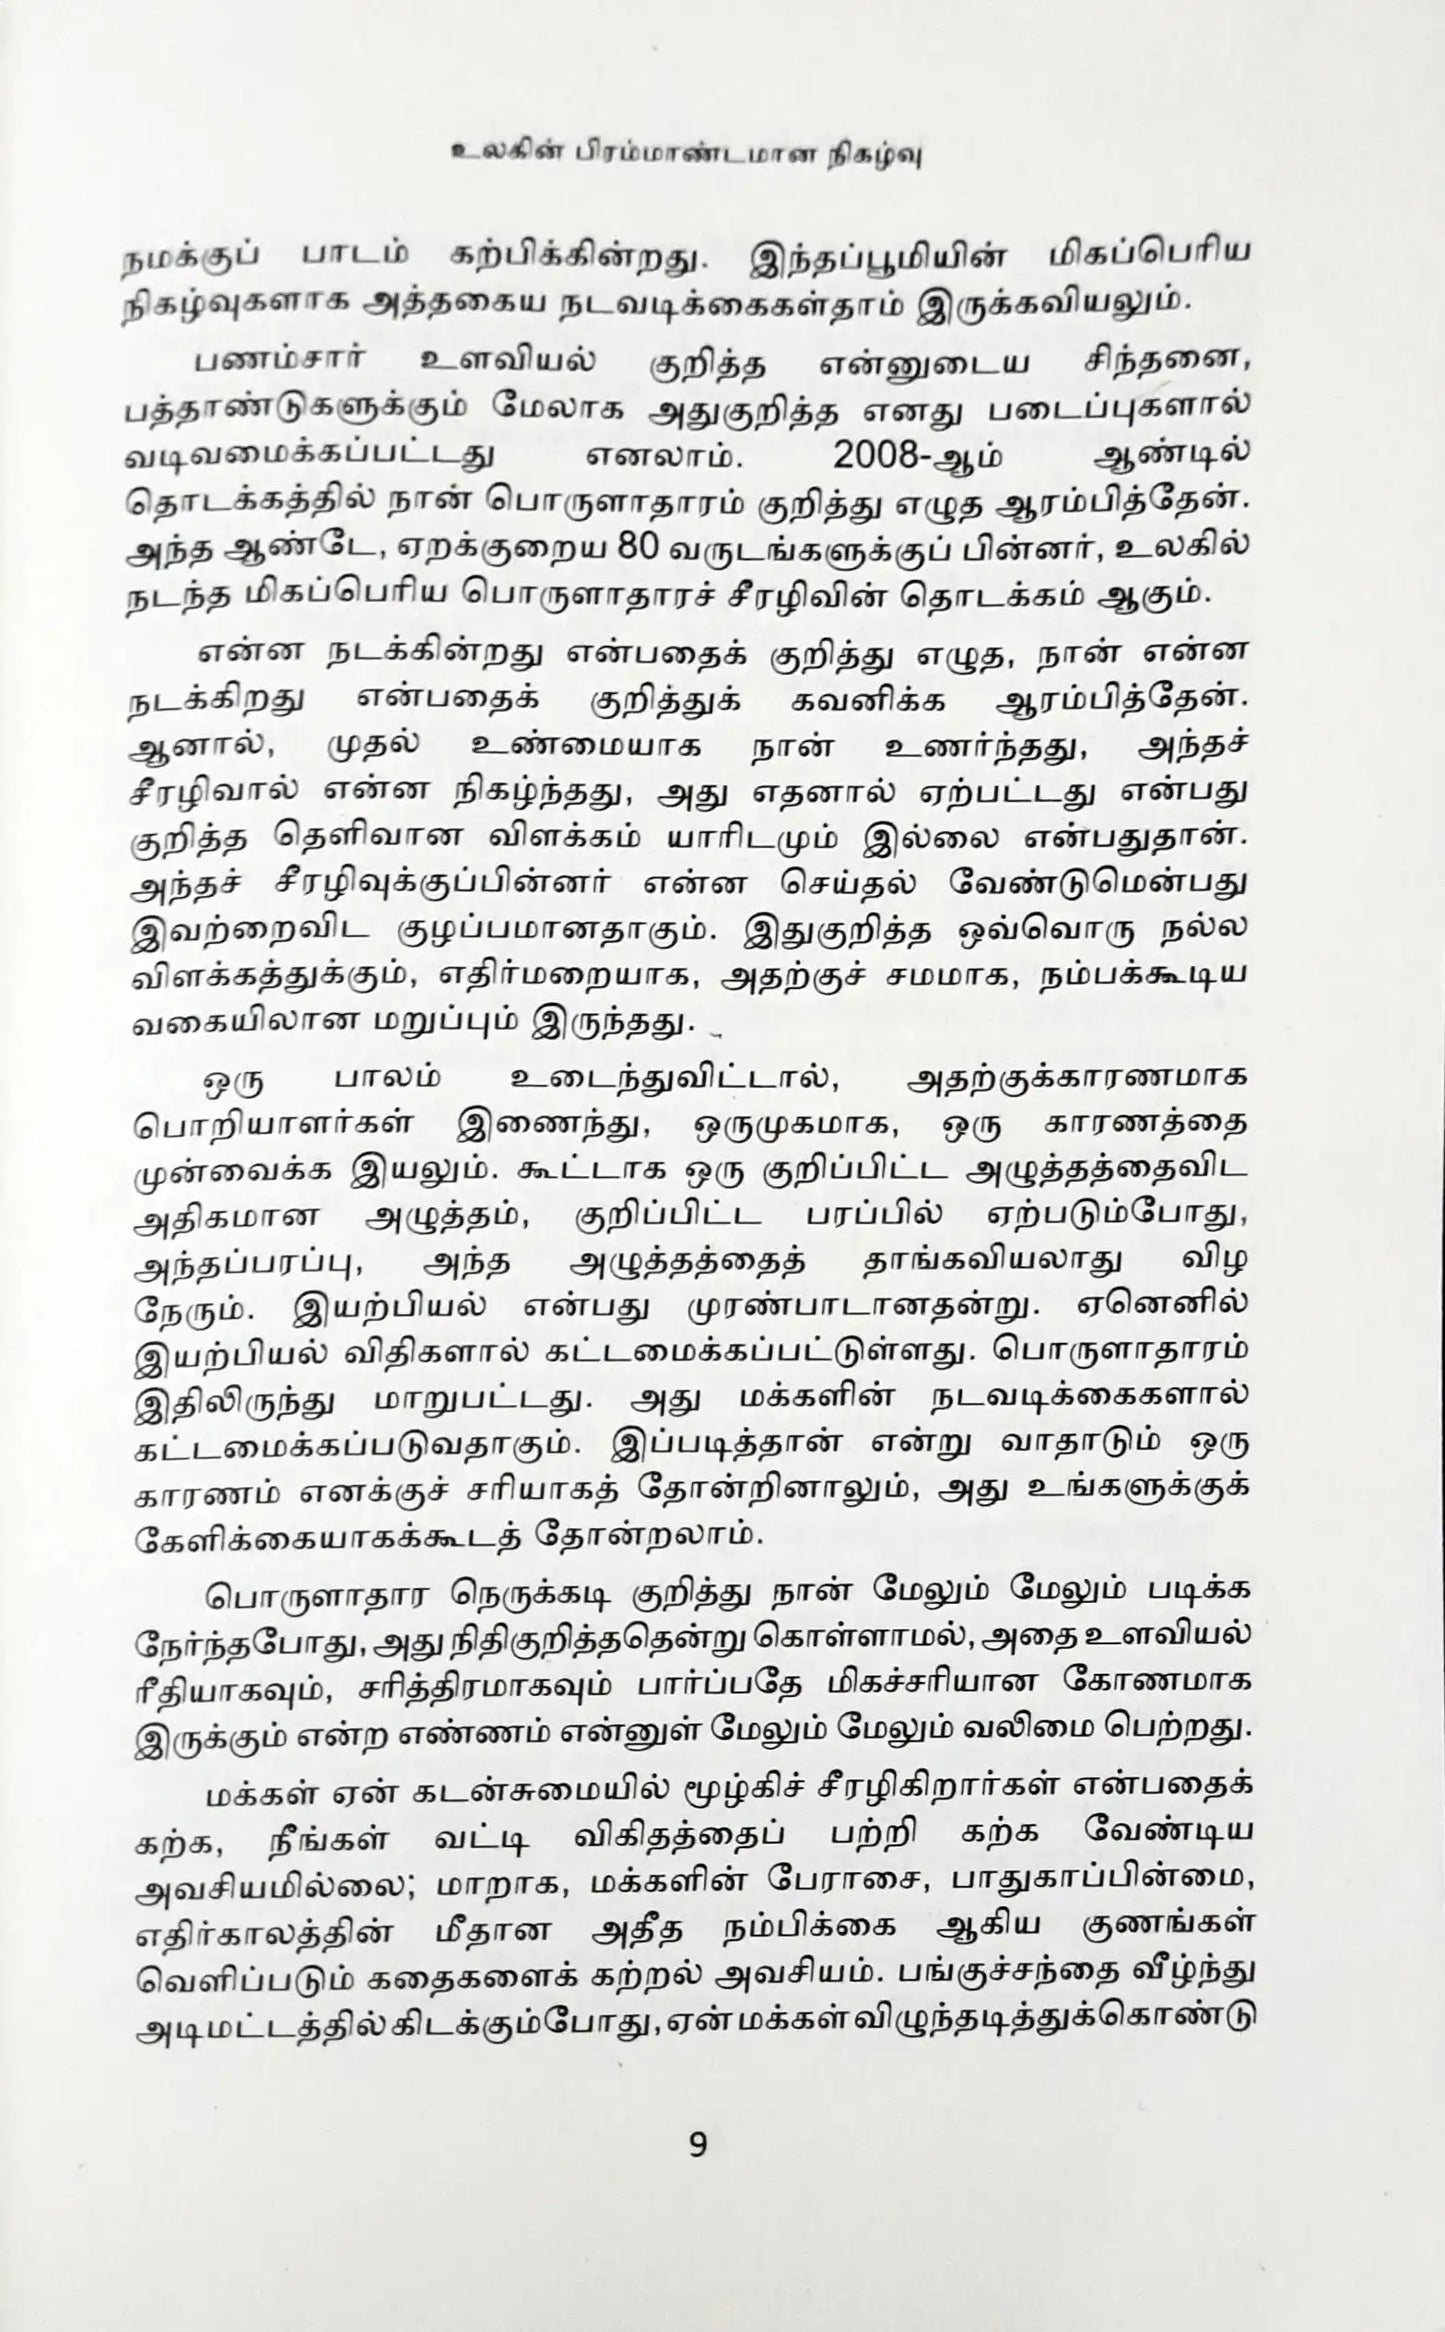 உலகின் பிரம்மாண்டமான நிகழ்வு
நமக்குப் பாடம் கற்பிக்கின்றது. இந்தப்பூமியின் மிகப்பெரிய
நிகழ்வுகளாக அத்தகைய நடவடிக்கைகள்தாம் இருக்கவியலும்.
பணம்சார் உளவியல் குறித்த என்னுடைய சிந்தனை,
பத்தாண்டுகளுக்கும் மேலாக அதுகுறித்த எனது படைப்புகளால்
வடிவமைக்கப்பட்டது எனலாம். 2008-ஆம் ஆண்டில்
தொடக்கத்தில் நான் பொருளாதாரம் குறித்து எழுத ஆரம்பித்தேன்.
அந்த ஆண்டே, ஏறக்குறைய 80 வருடங்களுக்குப் பின்னர், உலகில்
நடந்த மிகப்பெரிய பொருளாதாரச் சீரழிவின் தொடக்கம் ஆகும்.
என்ன நடக்கின்றது என்பதைக் குறித்து எழுத, நான் என்ன
நடக்கிறது என்பதைக் குறித்துக் கவனிக்க ஆரம்பித்தேன்.
ஆனால், முதல் உண்மையாக நான் உணர்ந்தது, அந்தச்
சீரழிவால் என்ன நிகழ்ந்தது, அது எதனால் ஏற்பட்டது என்பது
குறித்த தெளிவான விளக்கம் யாரிடமும் இல்லை என்பதுதான்.
அந்தச் சீரழிவுக்குப்பின்னர் என்ன செய்தல் வேண்டுமென்பது
இவற்றைவிட குழப்பமானதாகும். இதுகுறித்த ஒவ்வொரு நல்ல
விளக்கத்துக்கும், எதிர்மறையாக, அதற்குச் சமமாக, நம்பக்கூடிய
வகையிலான மறுப்பும் இருந்தது.
ஒரு பாலம் உடைந்துவிட்டால், அதற்குக்காரணமாக
பொறியாளர்கள் இணைந்து, ஒருமுகமாக, ஒரு காரணத்தை
முன்வைக்க இயலும். கூட்டாக ஒரு குறிப்பிட்ட அழுத்தத்தைவிட
அதிகமான அழுத்தம், குறிப்பிட்ட பரப்பில் ஏற்படும்போது,
அந்தப்பரப்பு, அந்த அழுத்தத்தைத் தாங்கவியலாது விழ
நேரும். இயற்பியல் என்பது முரண்பாடானதன்று. ஏனெனில்
இயற்பியல் விதிகளால் கட்டமைக்கப்பட்டுள்ளது. பொருளாதாரம்
இதிலிருந்து மாறுபட்டது. அது மக்களின் நடவடிக்கைகளால்
கட்டமைக்கப்படுவதாகும். இப்படித்தான் என்று வாதாடும் ஒரு
காரணம் எனக்குச் சரியாகத் தோன்றினாலும், அது உங்களுக்குக்
கேளிக்கையாகக்கூடத் தோன்றலாம்.
பொருளாதார நெருக்கடி குறித்து நான் மேலும் மேலும் படிக்க
நேர்ந்தபோது, அது நிதிகுறித்ததென்று கொள்ளாமல், அதை உளவியல்
ரீதியாகவும், சரித்திரமாகவும் பார்ப்பதே மிகச்சரியான கோணமாக
இருக்கும் என்ற எண்ணம் என்னுள் மேலும் மேலும் வலிமை பெற்றது.
மக்கள் ஏன் கடன்சுமையில் மூழ்கிச் சீரழிகிறார்கள் என்பதைக்
கற்க, நீங்கள் வட்டி விகிதத்தைப் பற்றி கற்க வேண்டிய
அவசியமில்லை; மாறாக, மக்களின் பேராசை, பாதுகாப்பின்மை,
எதிர்காலத்தின் மீதான அதீத நம்பிக்கை ஆகிய குணங்கள்
வெளிப்படும் கதைகளைக் கற்றல் அவசியம். பங்குச்சந்தை வீழ்ந்து
அடிமட்டத்தில் கிடக்கும்போது, ஏன் மக்கள் விழுந்தடித்துக்கொண்டு
9